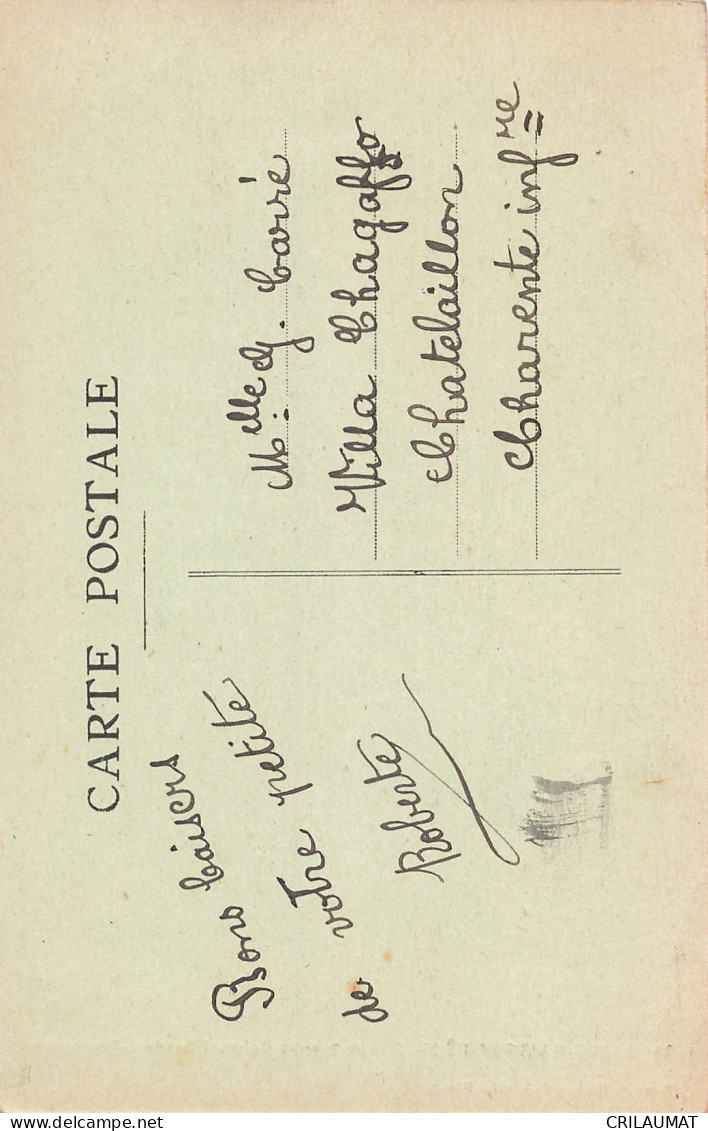 CARTE POSTALE
Bons baisers
de votre petite
Roberte
M.elle G. Carré
Villa Chagaffo
Chatelaillon
Charente infre
CRILAUMAT